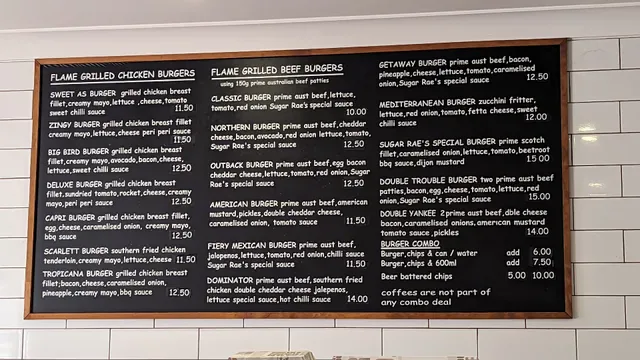 FLAME GRILLED CHICKEN BURGERS
SWEET AS BURGER grilled chicken breast
fillet,creamy mayo,lettuce ,cheese,tomato
sweet chilli sauce 11.50
ZINGY BURGER grilled chicken breast fillet
creamy mayo,lettuce,cheese peri peri sauce
11.50
BIG BIRD BURGER grilled chicken breast
fillet,creamy mayo,avocado,bacon,cheese,
lettuce,sweet chilli sauce 12.50
DELUXE BURGER grilled chicken breast
fillet.sundried tomato,rocket,cheese,creamy
mayo,peri peri sauce 12.50
CAPRI BURGER grilled chicken breast fillet,
egg,cheese,caramelised onion, creamy mayo,
bbq sauce 12.50
SCARLETT BURGER southern fried chicken
tenderloin,creamy mayo,lettuce,cheese 11.50
TROPICANA BURGER grilled chicken breast
fillet;bacon,cheese,caramelised onion,
pineapple,creamy mayo,bbq sauce 12.50
FLAME GRILLED BEEF BURGERS
using 150g prime australian beef patties
CLASSIC BURGER prime aust beef,lettuce,
tomato,red onion Sugar Rae's special sauce
10.00
NORTHERN BURGER prime aust beef,cheddar
cheese,bacon,avocado,red onion lettuce,tomato,
Sugar Rae's special sauce 12.50
OUTBACK BURGER prime aust beef,egg bacon
cheddar cheese,lettuce,tomato,red onion,Sugar
Rae's special sauce 12.50
AMERICAN BURGER prime aust beef,american
mustard,pickles,double cheddar cheese,
caramelised onion, tomato sauce 11.50
FIERY MEXICAN BURGER prime aust beef,
jalopenos,lettuce,tomato,red onion,chilli sauce
Sugar Rae's special sauce 11.50
DOMINATOR prime aust beef,southern fried
chicken double cheddar cheese jalepenos,
lettuce special sauce,hot chilli sauce 14.00
GETAWAY BURGER prime aust beef,bacon,
pineapple,cheese,lettuce,tomato,caramelised
onion,Sugar Rae's special sauce 12.50
MEDITERRANEAN BURGER zucchini fritter,
lettuce,red onion,tomato,fetta cheese,sweet
chilli sauce 12.00
SUGAR RAE'S SPECIAL BURGER prime scotch
fillet,caramelised onion,lettuce,tomato,beetroot
bbq sauce,dijon mustard 15 00
DOUBLE TROUBLE BURGER two prime aust beef
patties,bacon,egg,cheese,tomato,lettuce,red
onion,Sugar Rae's special sauce 15.00
DOUBLE YANKEE 2prime aust beef,dble cheese
bacon,caramelised onions,american mustard
tomato sauce ,pickles 14.00
BURGER COMBO
Burger,chips & can / water add 6.00
Burger,chips & 600ml add 7.50
Beer battered chips 5.00 10.00
coffees are not part of
any combo deal